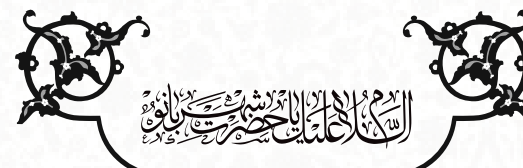 السلام علیک یا حضرت شهربانو